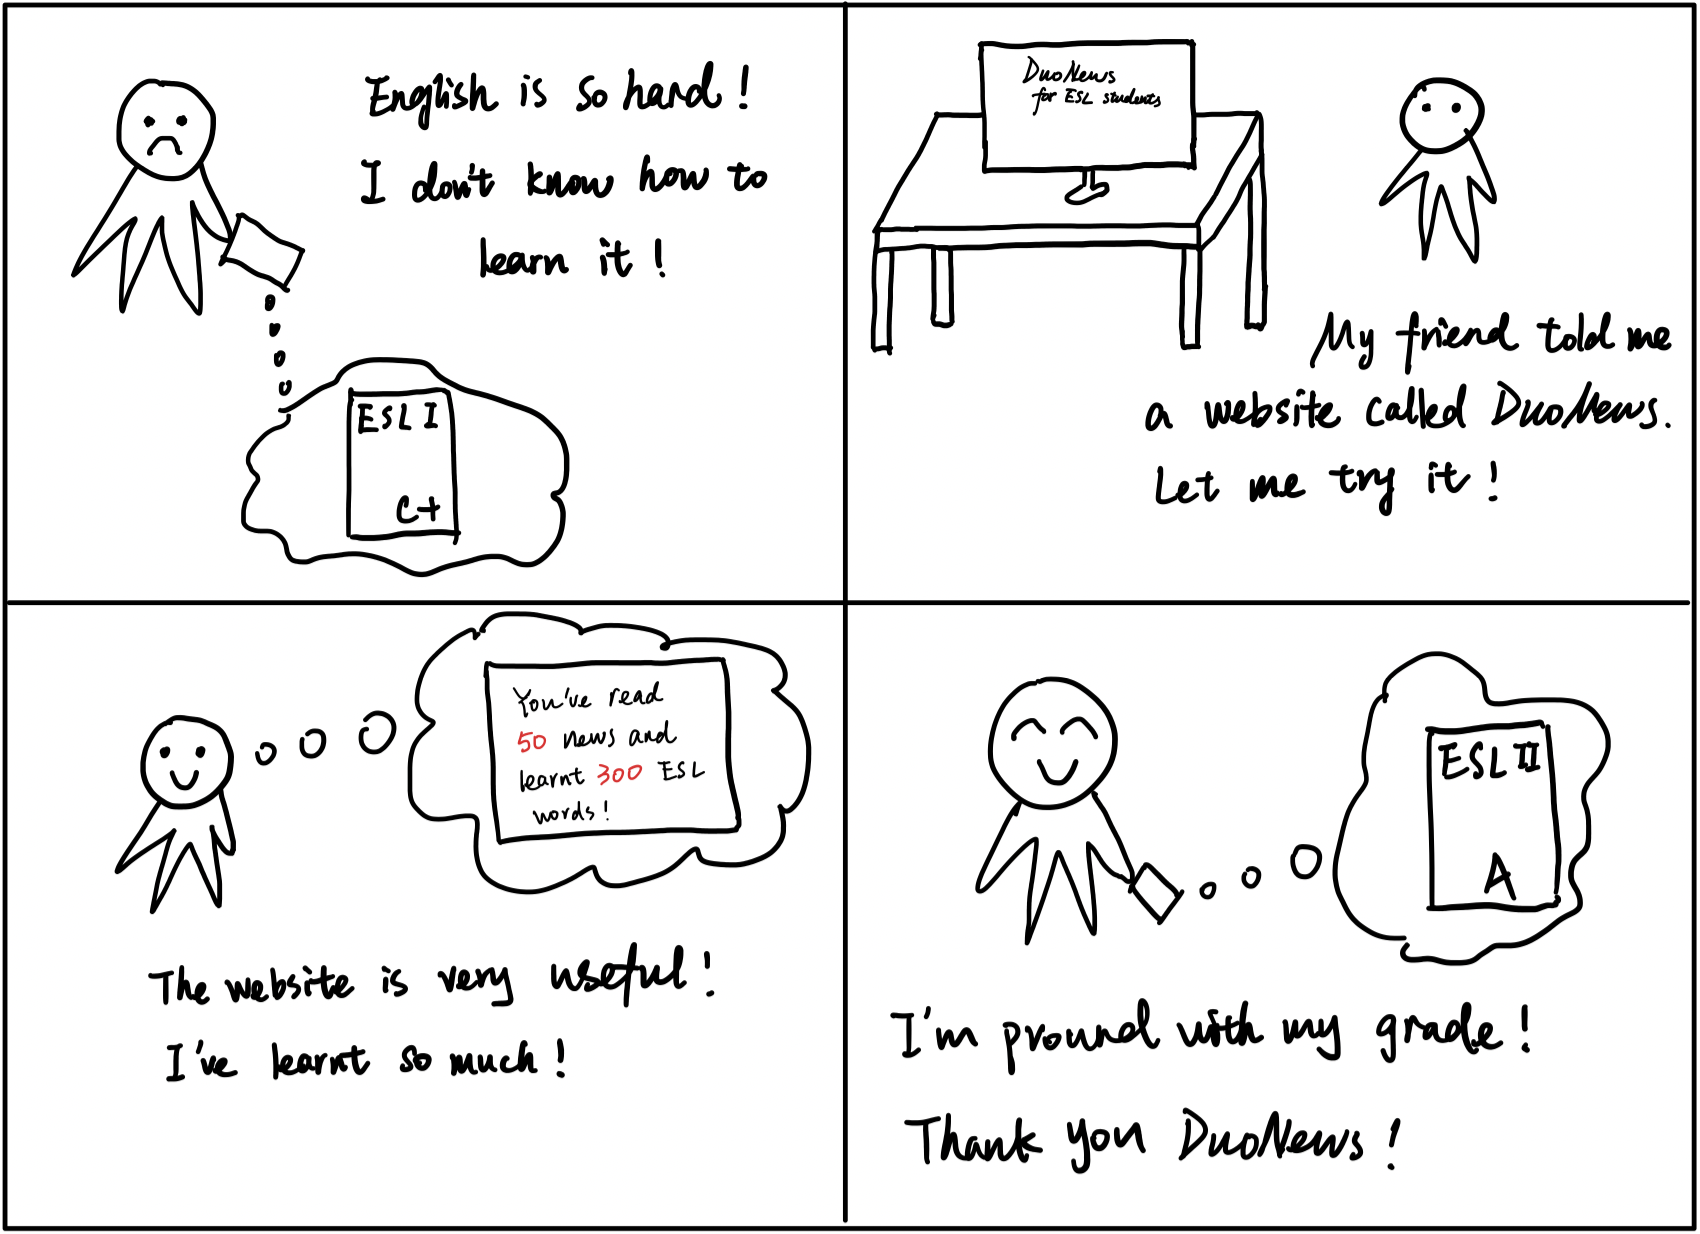 English is so hard!
I don't know how to
learn it!
ESL I
C+
DuoNews
for ESL students
My friend told me
a website called DuoNews.
Let me try it!
You've read
50 news and
learnt 300 ESL
words!
The website is very useful!
I've learnt so much!
ESL II
A
I'm pround with my grade!
Thank you DuoNews!